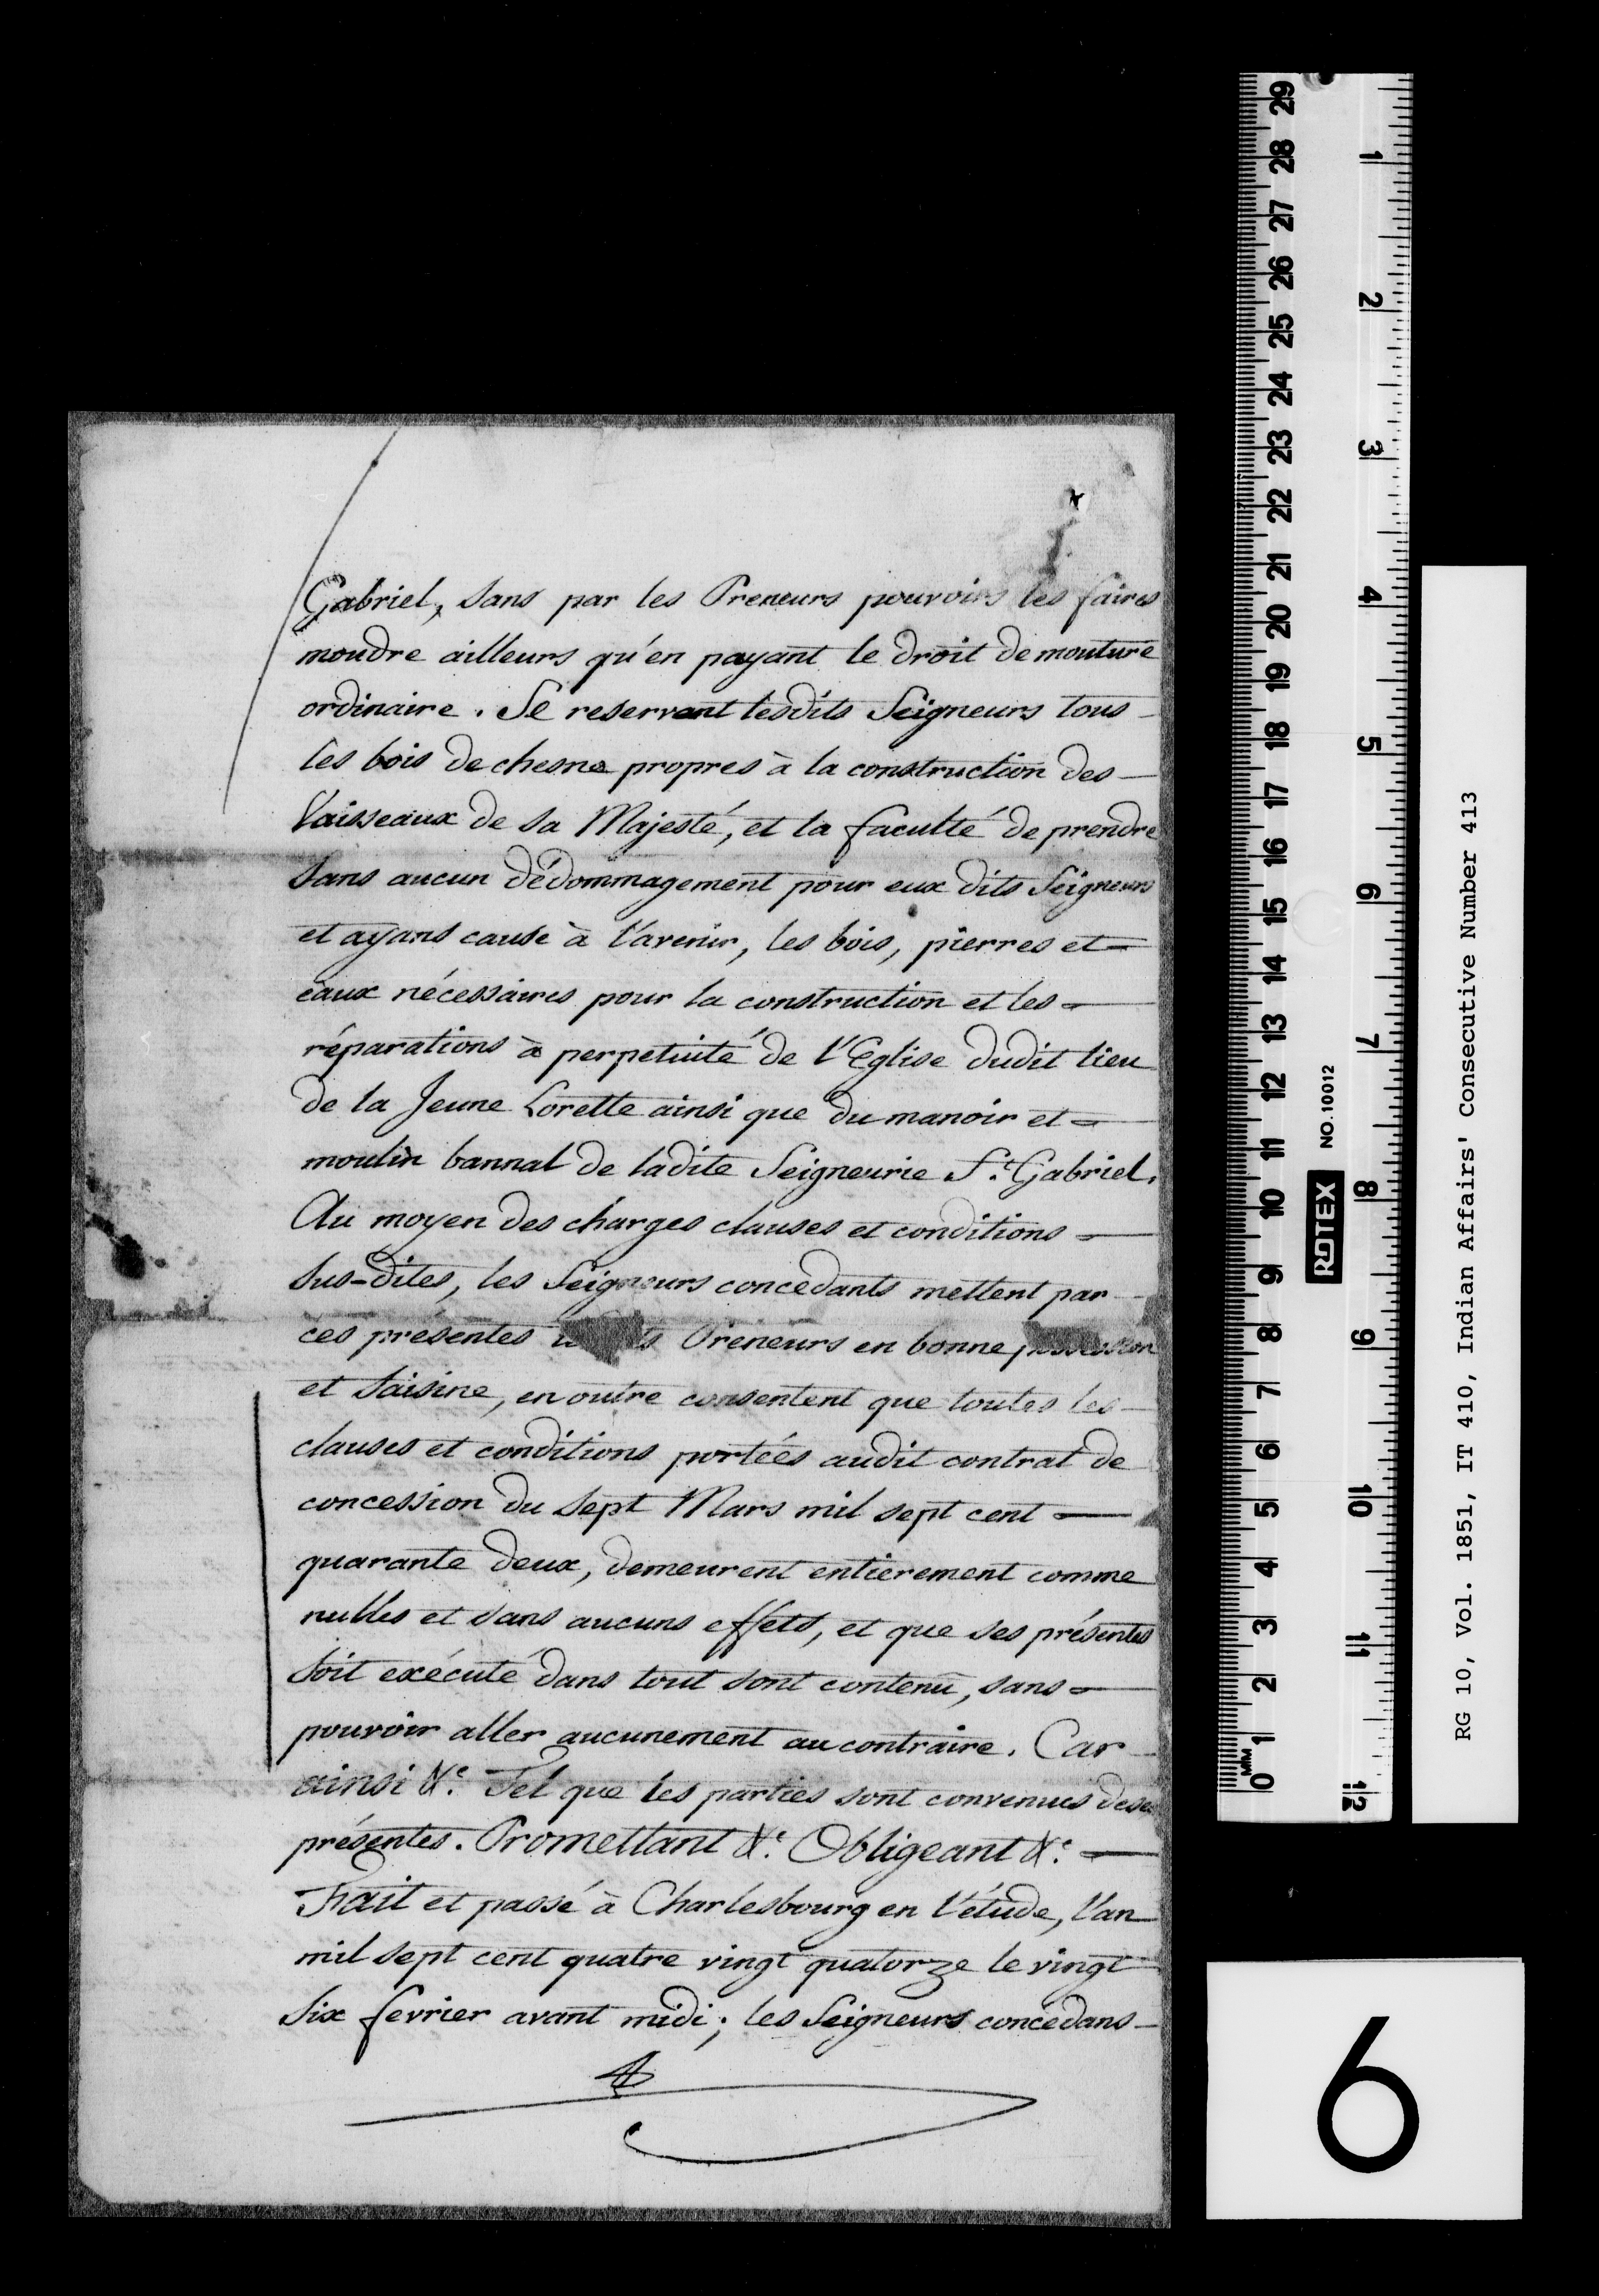 Gabriel, sans par les Preneurs pouvoirs les faires
moudre ailleurs qu'en payant le droit de mouture
ordinaire. Se reservant lesdits Seigneurs tous
les bois de chesne propres à la construction des
Vaisseaux de sa Majesté, et la faculté de prendre
sans aucun dédommagement pour eux dits Seigneurs
et ayans cause à l'avenir, les bois, pierres et
eaux nécessaires pour la construction et les
réparations à perpetuité de l'Eglise dudit lieu
de la Jeune Lorette ainsi que du manoir et
moulin bannal de ladite Seigneurie St. Gabriel.
Au moyen des charges clauses et conditions
sus-dites, les Seigneurs concedants mettent par
ces présentes Preneurs en bonne possession
et saisine, en outre consentent que toutes les
clauses et conditions portées audit contrat de
concession du sept Mars mil sept cent
quarante deux, demeurent entierement comme
nulles et sans aucuns effets, et que ses présentes
soit exécuté dans tout sont contenu, sans
pouvoir aller aucunement au contraire. Car
ainsi &c. Tel que les parties sont convenues
présentes. Promettant &c. Obligeant &c.
Fait et passé à Charlesbourg en l'étude, l'an
mil sept cent quatre vingt quatorze le vingt
six fevrier avant midi; les Seigneurs concédans
29 28 27 26 25 24 23 22 21 20 19 18 17 16 15 14 13 12 11 10 9 8 7 6 5 4 3 2 1 0
MM
1 2 3 4 5 6 7 8 9 10 11 12
ROTEX NO. 10012
RG 10, Vol. 1851, IT 410, Indian Affairs' Consecutive Number 413
6